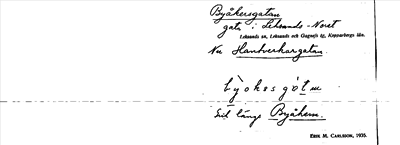 Byåkersgatan
gata i Leksands-Noret
Leksands sn, Leksands och Gagnefs tg, Kopparbergs län.
Nu Hantverkargatan.
Sid länge Byåkern.
ERIK M. CARLSSON, 1935.